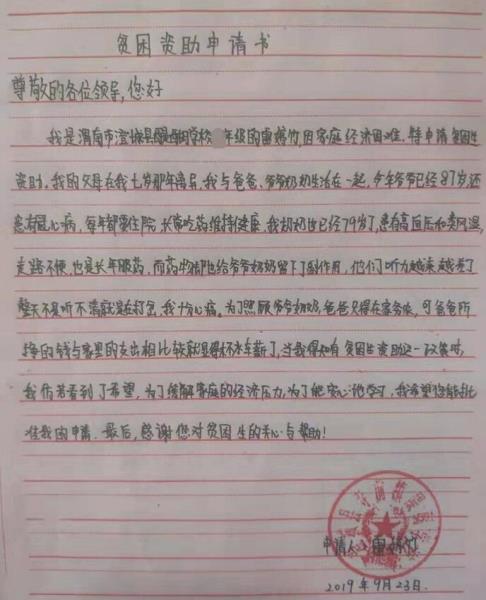 贫困资助申请书
尊敬的各位领导，您好
我是渭南市澄城县 学校 年级的雷 竹，因家庭经济困难，特申请贫困生
资助。我的父母在我七岁那年离异，我与爸爸、爷爷奶奶生活在一起，今年爷爷已经87岁，还
患有冠心病，每年都要住院，长常吃药维持健康，我奶奶也已经79岁了，患有高血压和类风湿，
走路不便，也是长年服药，而药物却也给爷爷奶奶留下了副作用，他们听力越来越差了
整天不是听不清就是在打岔，我十分心痛。为了照顾爷爷奶奶，爸爸只得在家务农，可爸爸所
挣的钱与家里的支出相比较就显得杯水车薪了，当我得知有贫困生资助这一政策时，
我仿若看到了希望，为了缓解家庭的经济压力，为了能安心地学习，我希望您能批
准我的申请。最后，感谢您对贫困生的关心与帮助！
申请人：雷 竹
2019年9月23日.